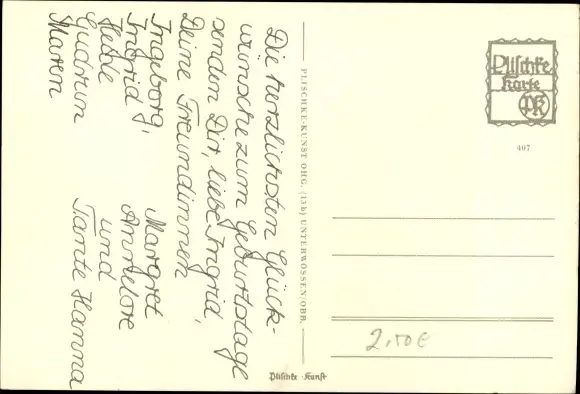 Die herzlichsten Glück-
wünsche zum Geburtstage
senden Dir, liebe Ingrid,
Deine Freundinnen
Ingeborg, Margret
Ingrid J. Annelore
Heide und
Gudrun Tante Hanna
Maren
PLISCHKE-KUNST OHG. (13b) UNTERWÖSSEN/OBB.
Plischke
Karte
PK
407
2,50€
Plischke-Kunst